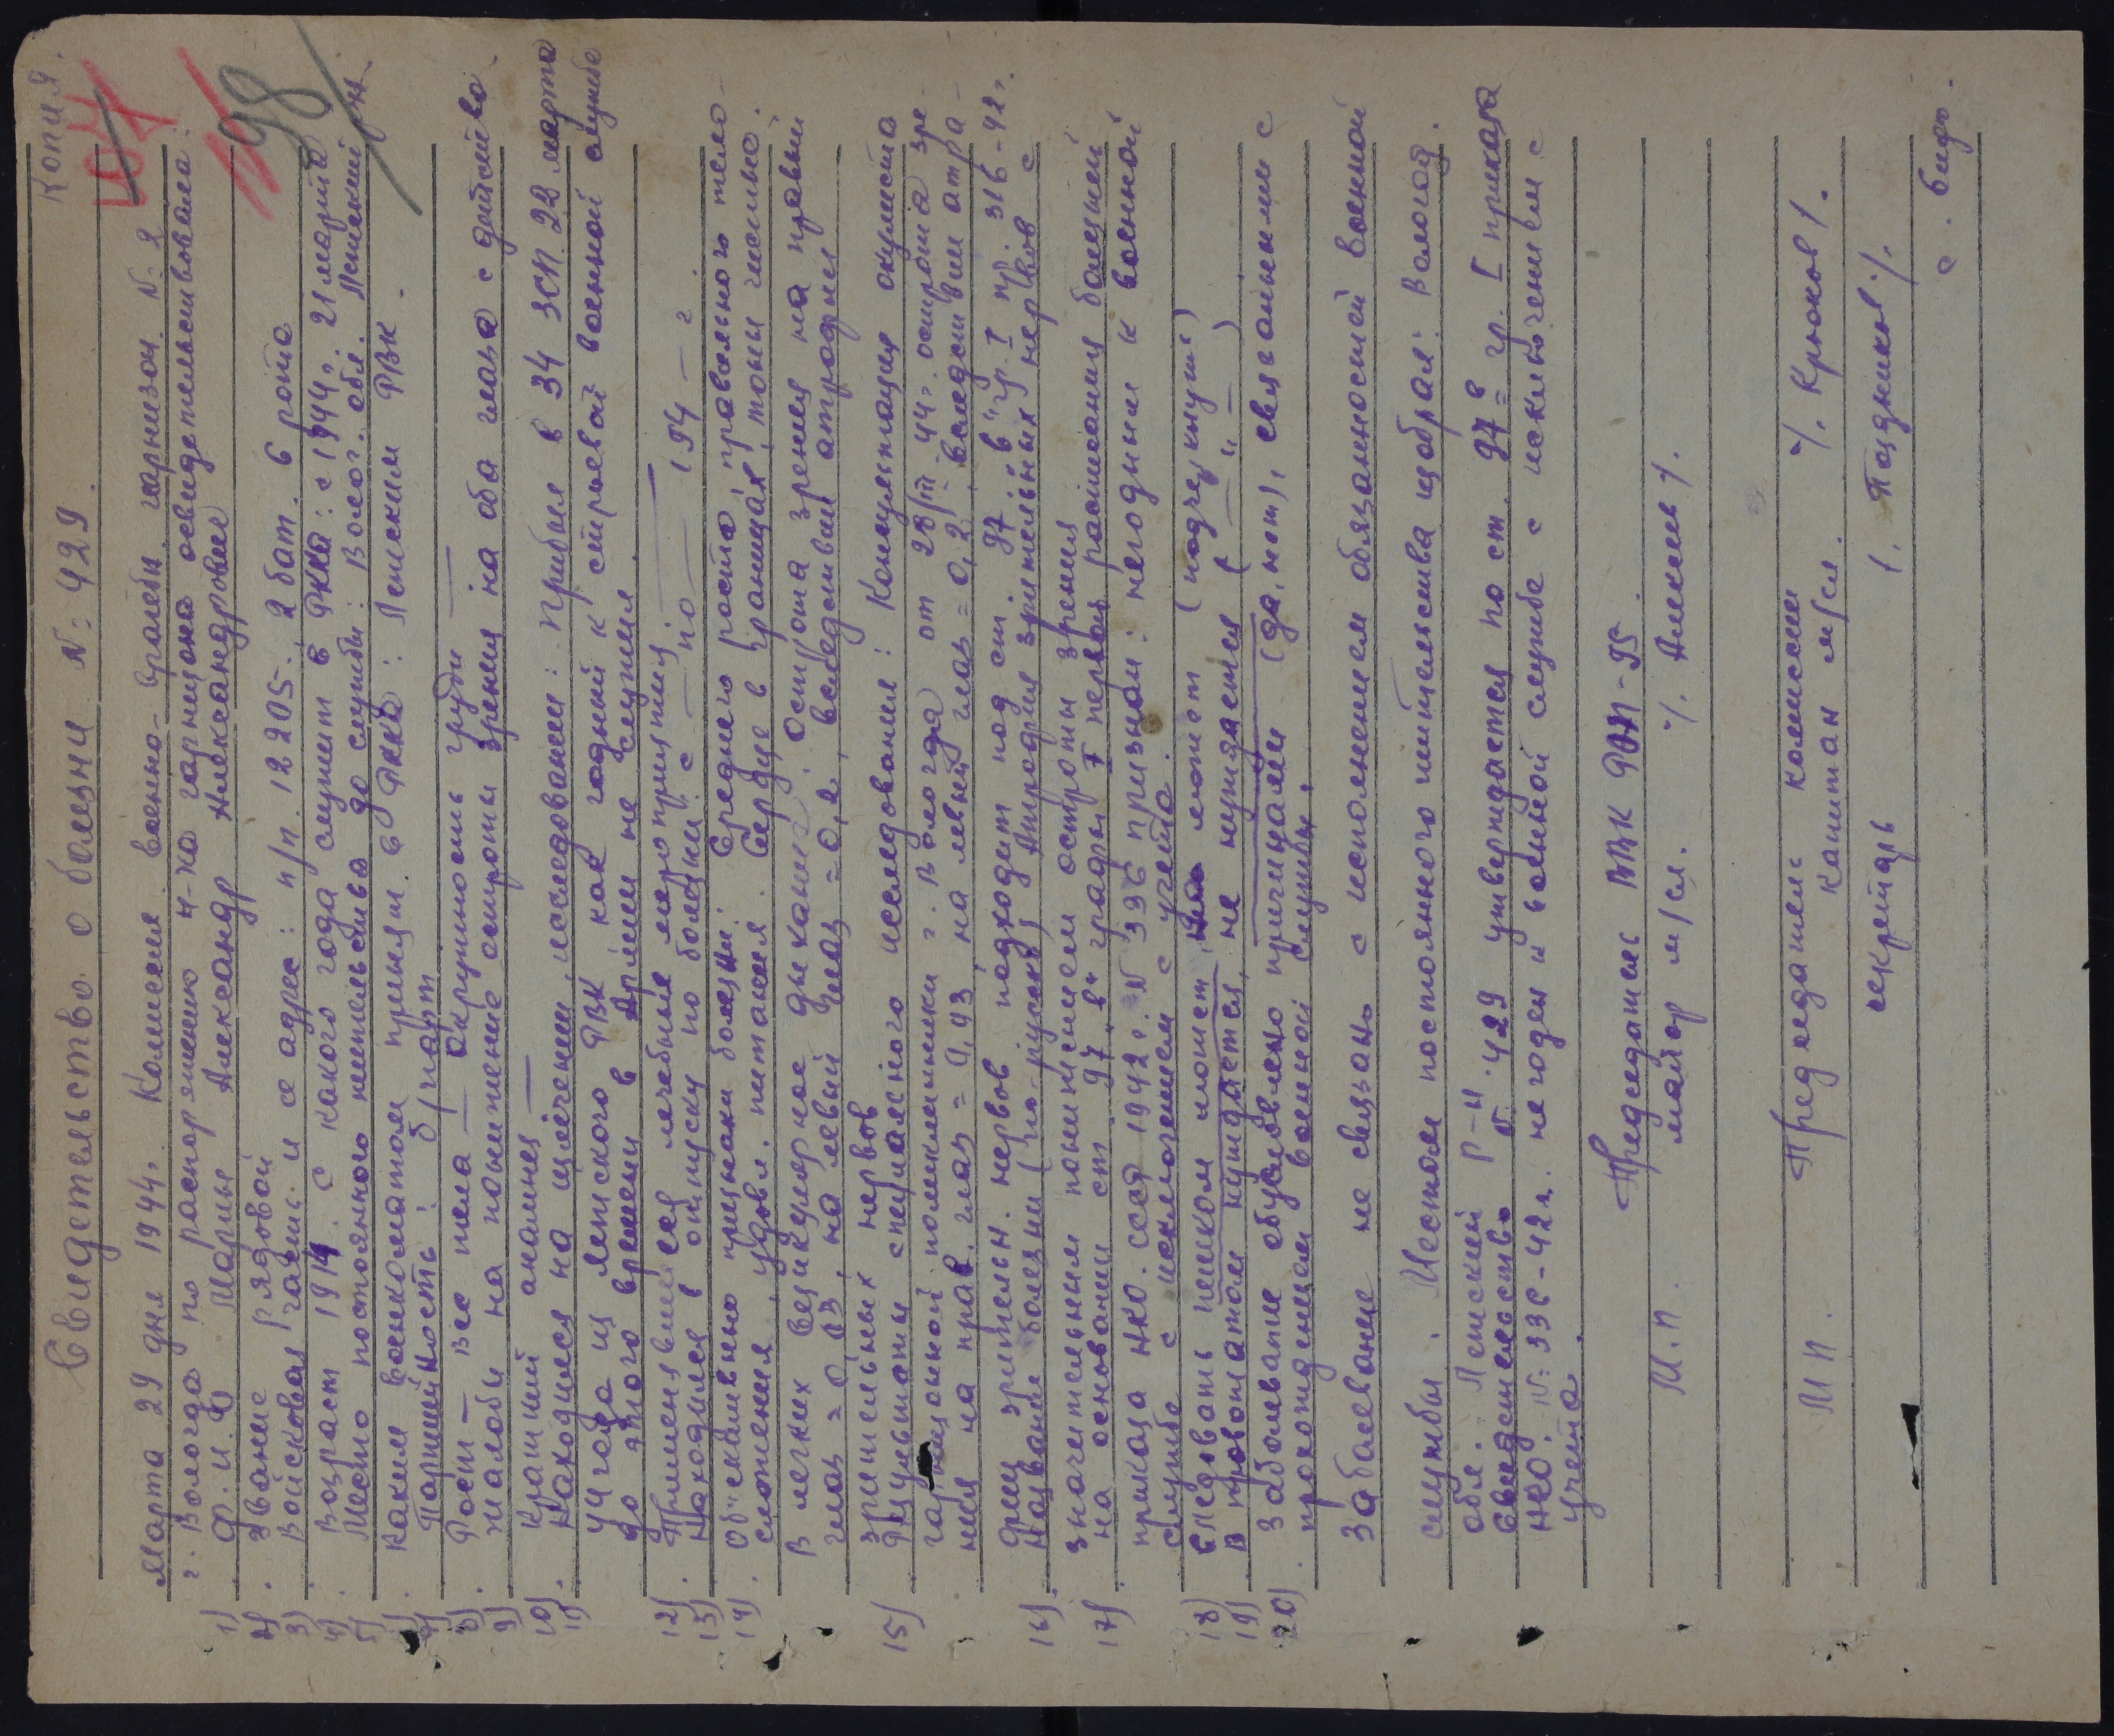 Копия.
98
Свидетельство о болезни N: 429.
Марта 29 дня 1944г. Комиссия военно-врачебн. гарнизон. N: 2
г. Вологда по распоряжению н-ка гарнизона освидетельствовала:
1) Ф. и. О Марьин Александр Александрович
2). Звание Рядовой
3) Войсковая часть и ее адрес: п/п. 12205. 2 бат. 6 рота
4). Возраст 1914. С какого года служит в РККА: с 1944г. 21 марта
5) Место постоянного жительства до службы: Волог. обл. Ленский рн.
6). Каким военкоматом призван в РККА: Ленским РВК.
7) Партийность: б/парт
8). Рост — Вес тела — Окружность груди —
9) жалобы на понижение остроты зрения на оба глаза с детства.
10) Краткий анамнез —
11). Находился на излечении, исследовании: Прибыл в 34 ЗСП. 22 марта
44 года из Ленского РВК как годный к строевой военной службе
до этого времени в Армии не служил.
12). Применявшиеся лечебные мероприятия: —
13) Находился в отпуску по болезни: с — по — 194 — г.
14). Объективно признаки болезни: Среднего роста, правильного тело-
сложения, удовл. питания. Сердце в границах, тоны чистые.
В легких везикулярное дыхание. Острота зрения на правый
глаз = 0,03, на левый глаз = 0,2, вследствии атродрии
зрительных нервов
15) Результаты специального исследования: Консультация окулиста
гарнизонной поликлиники г. Вологда от 28/III-44г. острота зре-
ния на прав. глаз = 0,03, на левый глаз = 0,2, вследствии атра-
фии зрительн. нервов подходит под ст 97 "в" гр. I пр. 316-42г.
16). Название болезни (по-русски) Атродрия зрительных нервов с
значительным понижением остроты зрения
17). на основании ст. 97 "в" градры I первой расписания болезней
приказа НКО. СССР 1942г. N 336 признан: негодным к военной
службе с исключением с учета.
18) Следовать пешком может, не может (подчеркнуть)
19) В провожатом нуждается, не нуждается ( — " — )
20). Заболевание обусловлено причинами (да, нет), связанными с
прохождением военной службы.
Заболевание не связано с исполнением обязанностей военной
службы. Местом постоянного жительства избрал: Вологод.
обл. Ленский Р-н
Свидетельство N: 429 утверждается по ст. 97 в гр. I приказа
НКО. N: 336-42г. не годен к военной службе с исключением с
учета.
Председатель ВВК РЭП-95.
М.П. майор м/сл. /. Алкеев /.
Председатель комиссии
М П. капитан м/сл. /. Крюков /.
секретарь /. Поздников /.